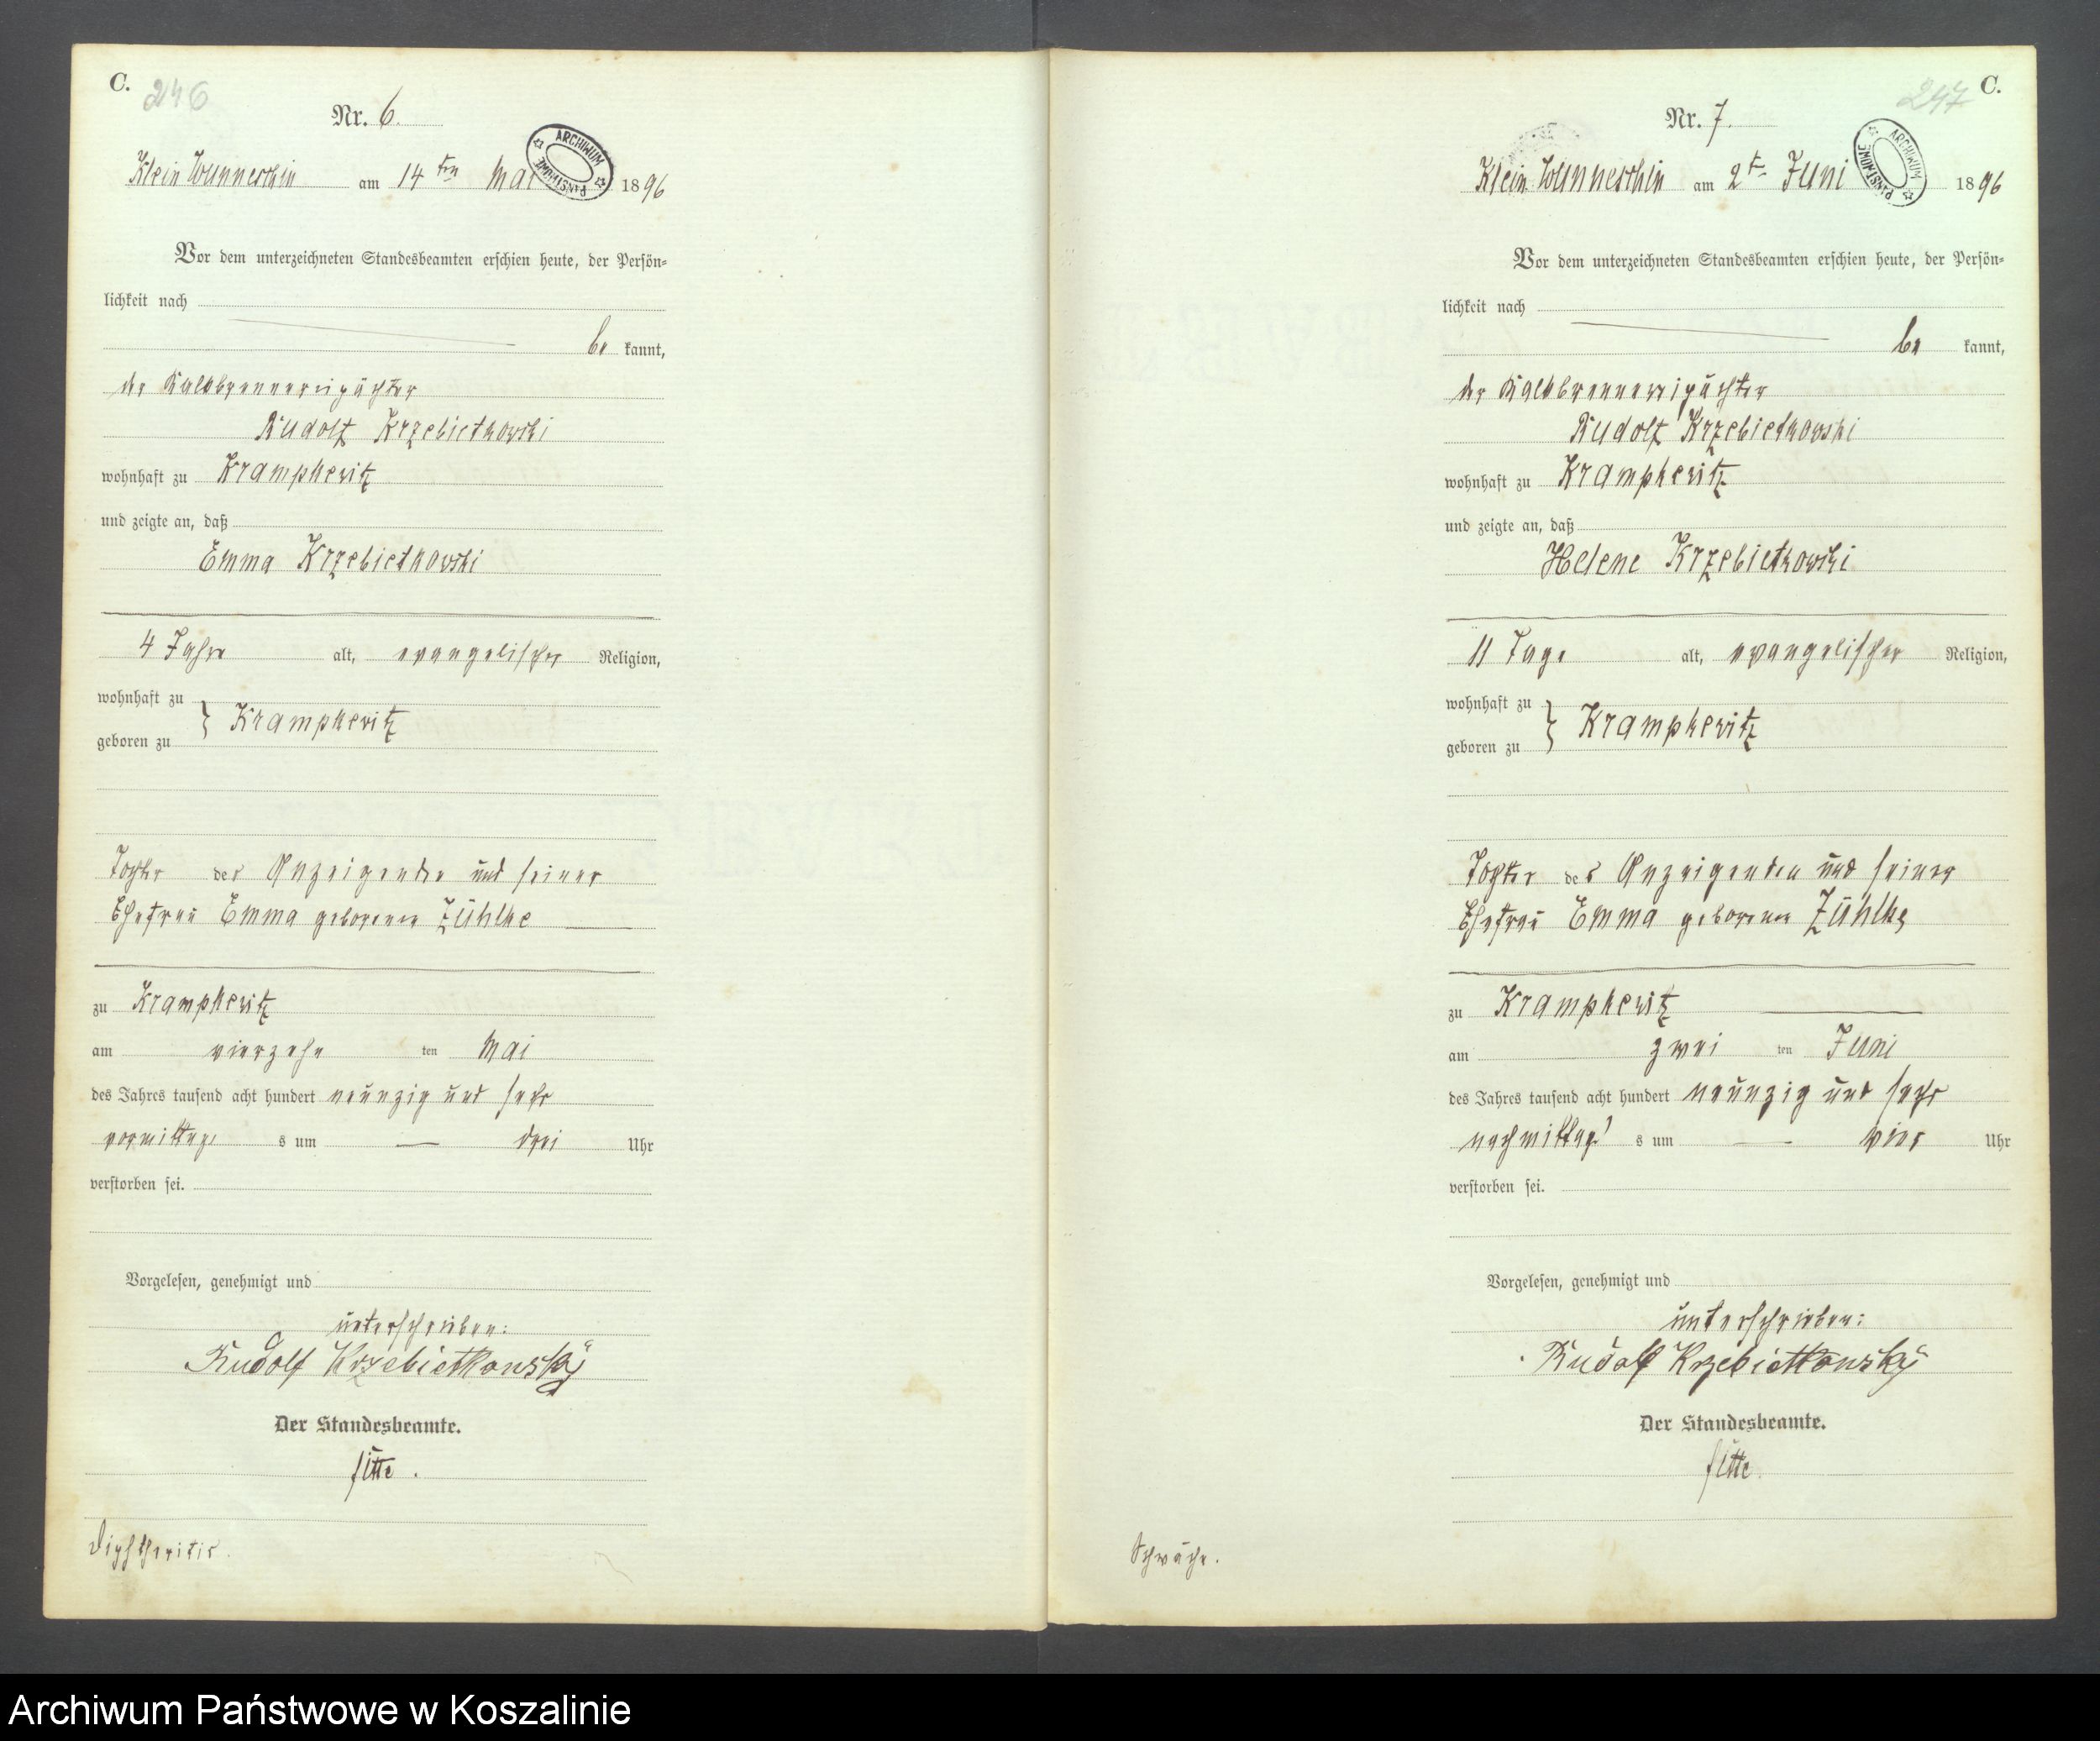 C. 246
Nr. 6.
Klein Wunneschin am 14ten Mai 1896
ARCHIWUM PAŃSTWOWE
Vor dem unterzeichneten Standesbeamten erschien heute, der Persön-
lichkeit nach
be kannt,
der Kalkbrennereipächter
Rudolf Krzebietkowski
wohnhaft zu Krampkewitz
und zeigte an, daß
Emma Krzebietkowski
4 Jahre alt, evangelischer Religion,
wohnhaft zu
geboren zu } Krampkewitz
Tochter des Anzeigenden und seiner
Ehefrau Emma geborenen Zühlke
zu Krampkewitz
am vierzehn ten Mai
des Jahres tausend acht hundert neunzig und sechs
vormittag s um — drei Uhr
verstorben sei.
Vorgelesen, genehmigt und
unterschrieben:
Rudolf Krzebietkowsky
Der Standesbeamte.
Diphtheritis.
247 C.
Nr. 7.
Klein Wunneschin am 2t Juni 1896
ARCHIWUM PAŃSTWOWE
Vor dem unterzeichneten Standesbeamten erschien heute, der Persön-
lichkeit nach
be kannt,
der Kalkbrennereipächter
Rudolf Krzebietkowski
wohnhaft zu Krampkewitz
und zeigte an, daß
Helene Krzebietkowski
11 Tage alt, evangelischer Religion,
wohnhaft zu
geboren zu } Krampkewitz
Tochter des Anzeigenden und seiner
Ehefrau Emma geborenen Zühlke
zu Krampkewitz
am zwei ten Juni
des Jahres tausend acht hundert neunzig und sechs
nachmittag s um — vier Uhr
verstorben sei.
Vorgelesen, genehmigt und
unterschrieben:
Rudolf Krzebietkowsky
Der Standesbeamte.
Schwäche.
Archiwum Państwowe w Koszalinie